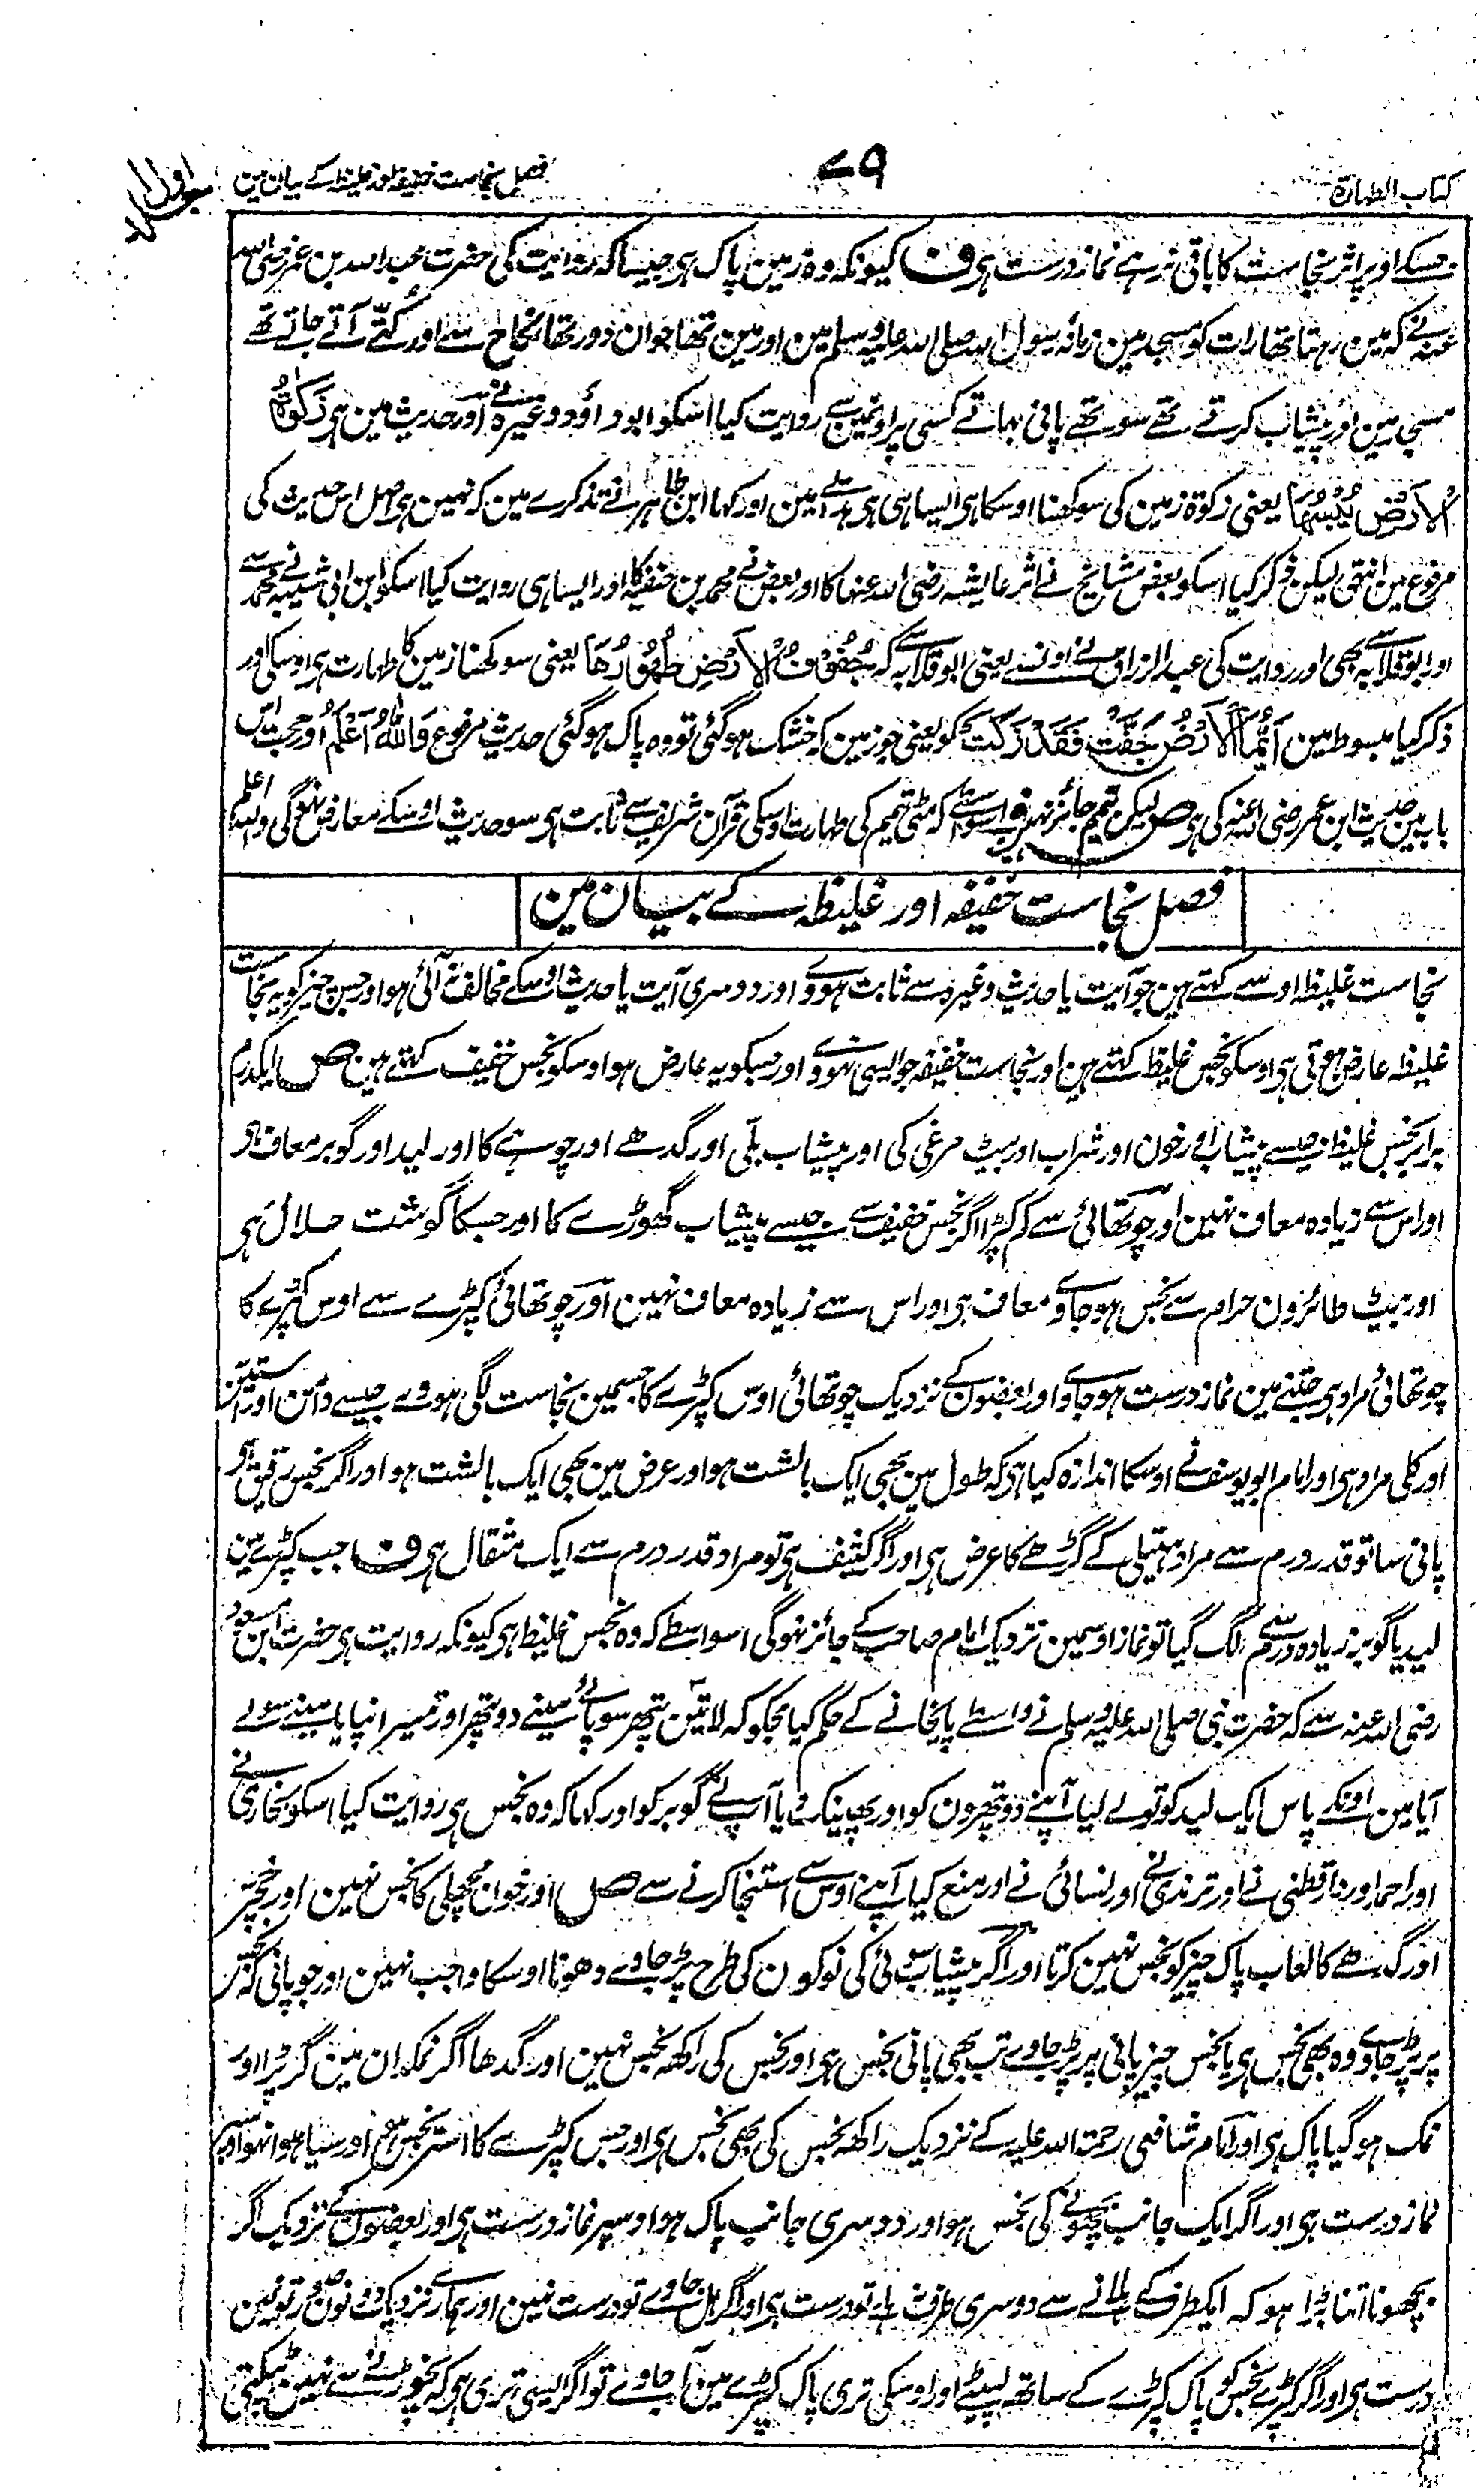 کتاب الطہارة
٧٩
فصل نجاست خفیفہ اور غلیظہ کے بیان مین
جلد اول
جسکے اوپر اثر نجاست کا باقی نرہے نماز درست ہی ف کیونکہ وہ زمین پاک ہی جیسا کہ روایت کی حضرت عبد اللہ بن عمر رضی اللہ
عنہ نے کہ مین رہتا تھا رات کو مسجد مین زمانہ رسول اللہ صلی اللہ علیہ وسلم مین اور مین تھا جوان دور تھا نکاح سے اور کتّے آتے جاتے تھے
مسجد مین اور پیشاب کرتے تھے سو نتھے پانی بہاتے کسی پر اونمین سے روایت کیا اسکو ابو داؤد وغیرہ نے اور حدیث مین ہی زَكٰوةُ
الْاَرْضِ يُبْسُهَا یعنی زکوة زمین کی سوکھنا اوسکا ہی ایسا ہی ہی ہدایے مین اور کہا ابن طاہر نے تذکرے مین کہ نہین ہی اصل اس حدیث کی
مرفوع مین انتہی لیکن ذکر کیا اسکو بعض مشایخ نے اثر عایشہ رضی اللہ عنہا کا اور بعض نے محمد بن حنفیہ کا اور ایسا ہی روایت کیا اسکو ابن ابی شیبہ نے محمد سے
اور ابو قلابہ سے بھی اور روایت کی عبد الرزاق نے اونسے یعنی ابو قلابہ سے کہ جُفُوْفُ الْاَرْضِ طُهُوْرُهَا یعنی سوکھنا زمین کا طہارت ہی اوسکی اور
ذکر کیا مبسوط مین اَيُّمَا الْاَرْضُ جَفَّتْ فَقَدْ زَكَتْ کو یعنی جو زمین کہ خشک ہو گئی تو وہ پاک ہو گئی حدیث مرفوع وَاللّٰهُ اَعْلَمُ اور حجت اس
باب مین حدیث ابن عمر رضی اللہ عنہ کی ہی ص لیکن تیمم جائز نہین ف اسواسطے کہ مٹی تیمم کی طہارت اوسکی قرآن شریف سے ثابت ہی سو حدیث اوسکے معارض نہوگی واللہ اعلم
فصل نجاست خفیفہ اور غلیظہ کے بیان مین
نجاست غلیظہ اوسے کہتے ہین جو آیت یا حدیث وغیرہ سے ثابت ہووے اور دوسری آیت یا حدیث اوسکے مخالف نہ آئی ہو اور جس چیز کو یہ نجاست
غلیظہ عارض ہوتی ہی اوسکو نجس غلیظ کہتے ہین اور نجاست خفیفہ جو ایسی نہووے اور جسکو یہ عارض ہو اوسکو نجس خفیف کہتے ہین ص ایکدرم
برابر نجس غلیظ جیسے پیشاب اور خون اور شراب اور بیٹ مرغی کی اور پیشاب بلّی اور گدھے اور چوہے کا اور لید اور گوبر معاف ہی
اور اس سے زیادہ معاف نہین اور چوتھائی سے کم کپڑا اگر نجس خفیف سے جیسے پیشاب گھوڑے کا اور جسکا گوشت حلال ہی
اور بیٹ طائرون حرام سے نجس ہو جاوے معاف ہی اور اس سے زیادہ معاف نہین اور چوتھائی کپڑے سے اوس کپڑے کا
چوتھائی مراد ہی جتنے مین نماز درست ہو جاوے اور بعضون کے نزدیک چوتھائی اوس کپڑے کا جسمین نجاست لگی ہووے جیسے دامن اور آستین
اور کلی مراد ہی اور امام ابو یوسف نے اوسکا اندازہ کیا ہی کہ طول مین بھی ایک بالشت ہو اور عرض مین بھی ایک بالشت ہو اور اگر نجس رقیق ہو
پانی سا تو قدر درم سے مراد ہتیلی کے گڑھے کا عرض ہی اور اگر کثیف ہی تو مراد قدر درم سے ایک مثقال ہی ف جب کپڑے مین
لید یا گوبر زیادہ درم سے لگ گیا تو نماز اوسمین نزدیک امام صاحب کے جائز نہوگی اسواسطے کہ وہ نجس غلیظ ہی کیونکہ روایت ہی حضرت ابن مسعود
رضی اللہ عنہ سے کہ حضرت نبی صلی اللہ علیہ وسلم نے واسطے پایخانے کے حکم کیا مجکو کہ لا تین پتھر سو پائے مینے دو پتھر اور تیسرا نپایا مینے سو لے
آیا مین اونکے پاس ایک لید کو تو لے لیا آپنے دو پتھرون کو اور پھینک دیا آپ نے گوبر کو اور کہا کہ وہ نجس ہی روایت کیا اسکو بخاری نے
اور احمد اور دارقطنی نے اور ترمذی نے اور نسائی نے اور منع کیا آپنے اوس سے استنجا کرنے سے ص اور خون مچھلی کا نجس نہین اور خچر
اور گدھے کا لعاب پاک چیز کو نجس نہین کرتا اور اگر پیشاب سوئی کی نوکون کی طرح پڑ جاوے دھونا اوسکا واجب نہین اور جو پانی کہ نجس
پر پڑ جاوے وہ بھی نجس ہی یا نجس چیز پانی پر پڑ جاوے تب بھی پانی نجس ہی اور نجس کی راکھ نجس نہین اور گدھا اگر نمکدان مین گر پڑا اور
نمک ہو گیا پاک ہی اور امام شافعی رحمۃ اللہ علیہ کے نزدیک راکھ نجس کی بھی نجس ہی اور جس کپڑے کا استر نجس ہو اور سیا ہوا نہو اوسپر
نماز درست ہی اور اگر ایک جانب بچھونے کی نجس ہو اور دوسری جانب پاک ہو اوسپر نماز درست ہی اور بعضون کے نزدیک اگر
بچھونا اتنا بڑا ہو کہ ایکطرف کے ہلانے سے دوسری طرف نہ ہلے تو درست ہی اور اگر ہل جاوے تو درست نہین اور ہمارے نزدیک دونون صورتونمین
درست ہی اور اگر کپڑے نجس کو پاک کپڑے کے ساتھ لپیٹے اور اوسکی تری پاک کپڑے مین آجاوے تو اگر ایسی تری ہی کہ نچوڑنے سے نہین ٹپکتی